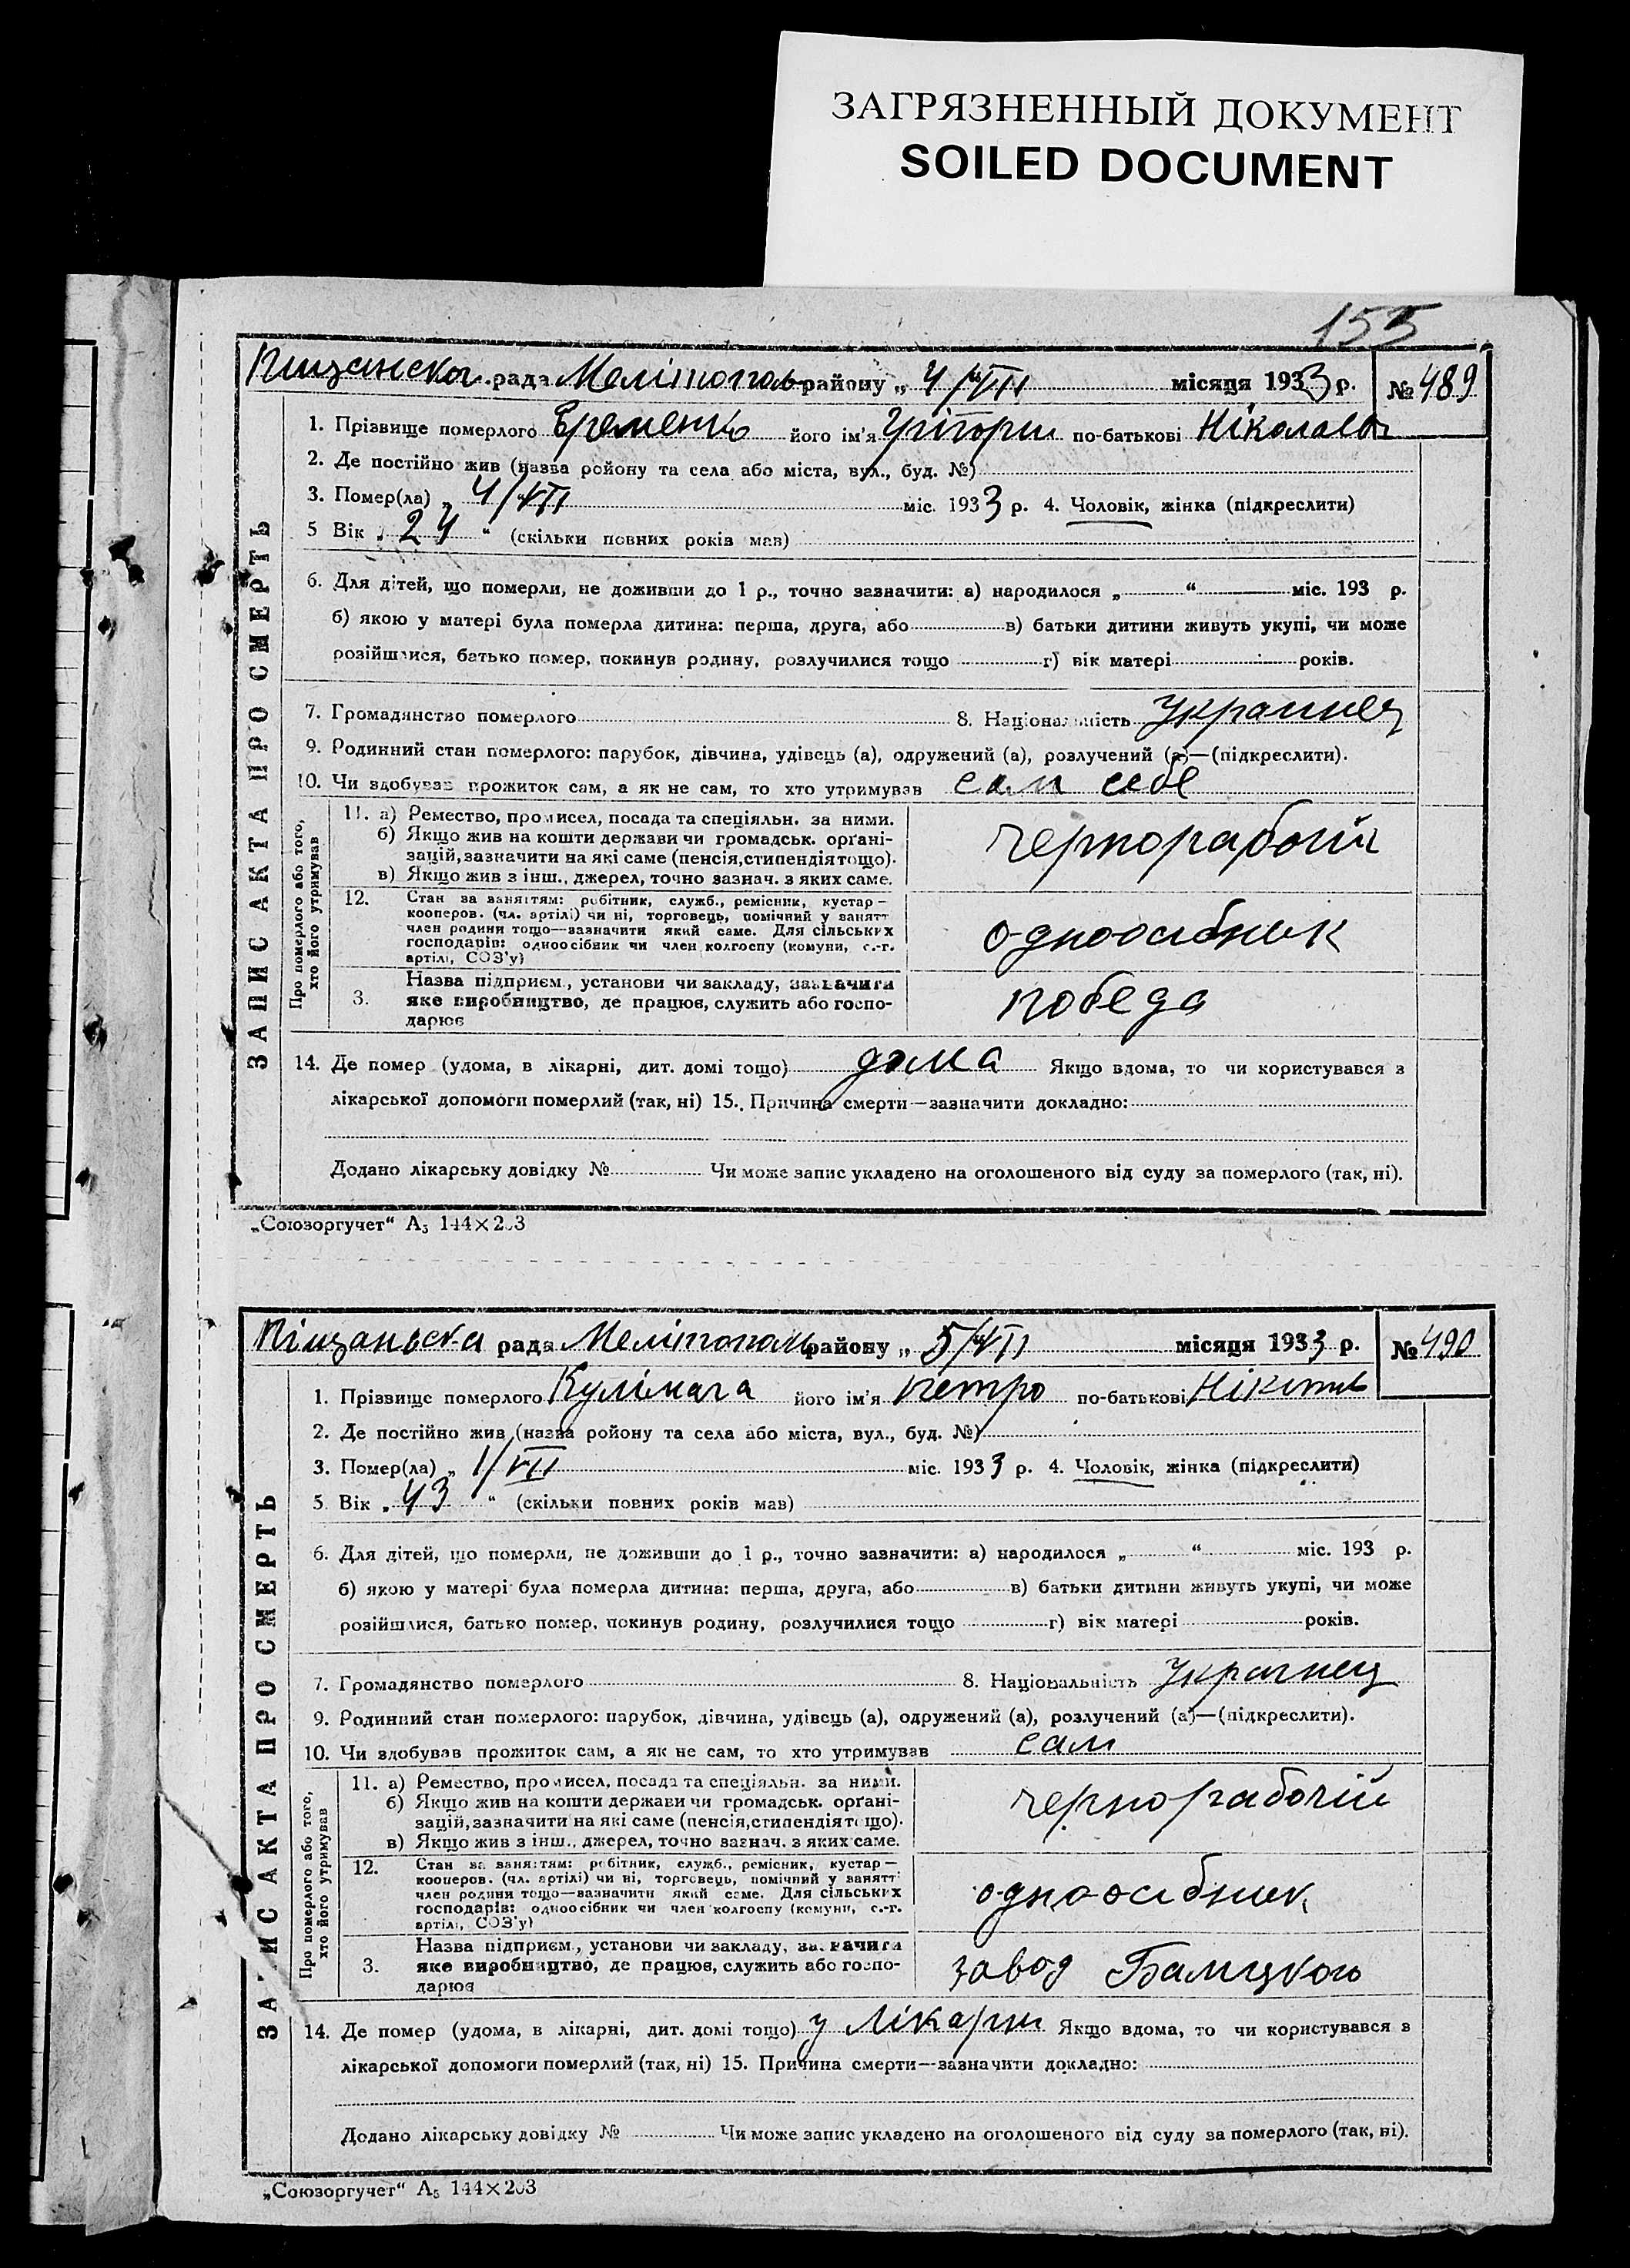 ЗАГРЯЗНЕННЫЙ ДОКУМЕНТ
SOILED DOCUMENT
155
Пищанска рада Мелітополь району „ 4/VII місяця 1933 р. № 489
ЗАПИС АКТА ПРО СМЕРТЬ
1. Прізвище померлого Єременко його ім'я Грігорий по-батькові Ніколаєв
2. Де постійно жив (назва ройону та села або міста, вул., буд. №)
3. Помер(ла) „ 4/VII міс. 1933 р. 4. Чоловік, жінка (підкреслити)
5 Вік „ 24 “ (скільки повних років мав)
6. Для дітей, що померли, не доживши до 1 р., точно зазначити: а) народилося „ “ міс. 193 р.
б) якою у матері була померла дитина: перша, друга, або в) батьки дитини живуть укупі, чи може
розійшлися, батько помер, покинув родину, розлучилися тощо г) вік матері років.
7. Громадянство померлого 8. Національність Украинец
9. Родинний стан померлого: парубок, дівчина, удівець (а), одружений (а), розлучений (а)—(підкреслити).
10. Чи здобував прожиток сам, а як не сам, то хто утримував сам себе
Про померлого або того, хто його утримував
11. а) Ремество, промисел, посада та спеціяльн. за ними.
б) Якщо жив на кошти держави чи громадськ. органі-
зацій, зазначити на які саме (пенсія, стипендія тощо).
в) Якщо жив з інш., джерел, точно зазнач. з яких саме.
чернорабочий
12. Стан за заняттям: робітник, служб., ремісник, кустар—
кооперов. (чл. артілі) чи ні, торговець, помічний у занятт
член родини тощо—зазначити який саме. Для сільських
господарів: одноосібник чи член колгоспу (комуни, с.-г.
артілі, СОЗ'у)
одноосібник
3. Назва підприєм., установи чи закладу, зазначити
яке виробництво, де працює, служить або госпо-
дарює
победа
14. Де помер (удома, в лікарні, дит. домі тощо) дома Якщо вдома, то чи користувався з
лікарської допомоги померлий (так, ні) 15. Причина смерти—зазначити докладно:
Додано лікарську довідку № Чи може запис укладено на оголошеного від суду за померлого (так, ні).
„Союзоргучет“ А5 144×203
Піщаньска рада Мелітополь району „ 5/VII місяця 1933 р. № 490
ЗАПИС АКТА ПРО СМЕРТЬ
1. Прізвище померлого Кулімага його ім'я Петро по-батькові Нікітив
2. Де постійно жив (назва ройону та села або міста, вул., буд. №)
3. Помер(ла) „ 1/VII міс. 1933 р. 4. Чоловік, жінка (підкреслити)
5 Вік „ 43 “ (скільки повних років мав)
6. Для дітей, що померли, не доживши до 1 р., точно зазначити: а) народилося „ “ міс. 193 р.
б) якою у матері була померла дитина: перша, друга, або в) батьки дитини живуть укупі, чи може
розійшлися, батько помер, покинув родину, розлучилися тощо г) вік матері років.
7. Громадянство померлого 8. Національність Украинец
9. Родинний стан померлого: парубок, дівчина, удівець (а), одружений (а), розлучений (а)—(підкреслити).
10. Чи здобував прожиток сам, а як не сам, то хто утримував сам
Про померлого або того, хто його утримував
11. а) Ремество, промисел, посада та спеціяльн. за ними.
б) Якщо жив на кошти держави чи громадськ. органі-
зацій, зазначити на які саме (пенсія, стипендія тощо).
в) Якщо жив з інш., джерел, точно зазнач. з яких саме.
чернорабочій
12. Стан за заняттям: робітник, служб., ремісник, кустар—
кооперов. (чл. артілі) чи ні, торговець, помічний у занятт
член родини тощо—зазначити який саме. Для сільських
господарів: одноосібник чи член колгоспу (комуни, с.-г.
артілі, СОЗ'у)
одноосібник
3. Назва підприєм., установи чи закладу, зазначити
яке виробництво, де працює, служить або госпо-
дарює
завод Балицкого
14. Де помер (удома, в лікарні, дит. домі тощо) у Лікарни Якщо вдома, то чи користувався в
лікарської допомоги померлий (так, ні) 15. Причина смерти—зазначити докладно:
Додано лікарську довідку № Чи може запис укладено на оголошеного від суду за померлого (так, ні).
„Союзоргучет“ А5 144×203